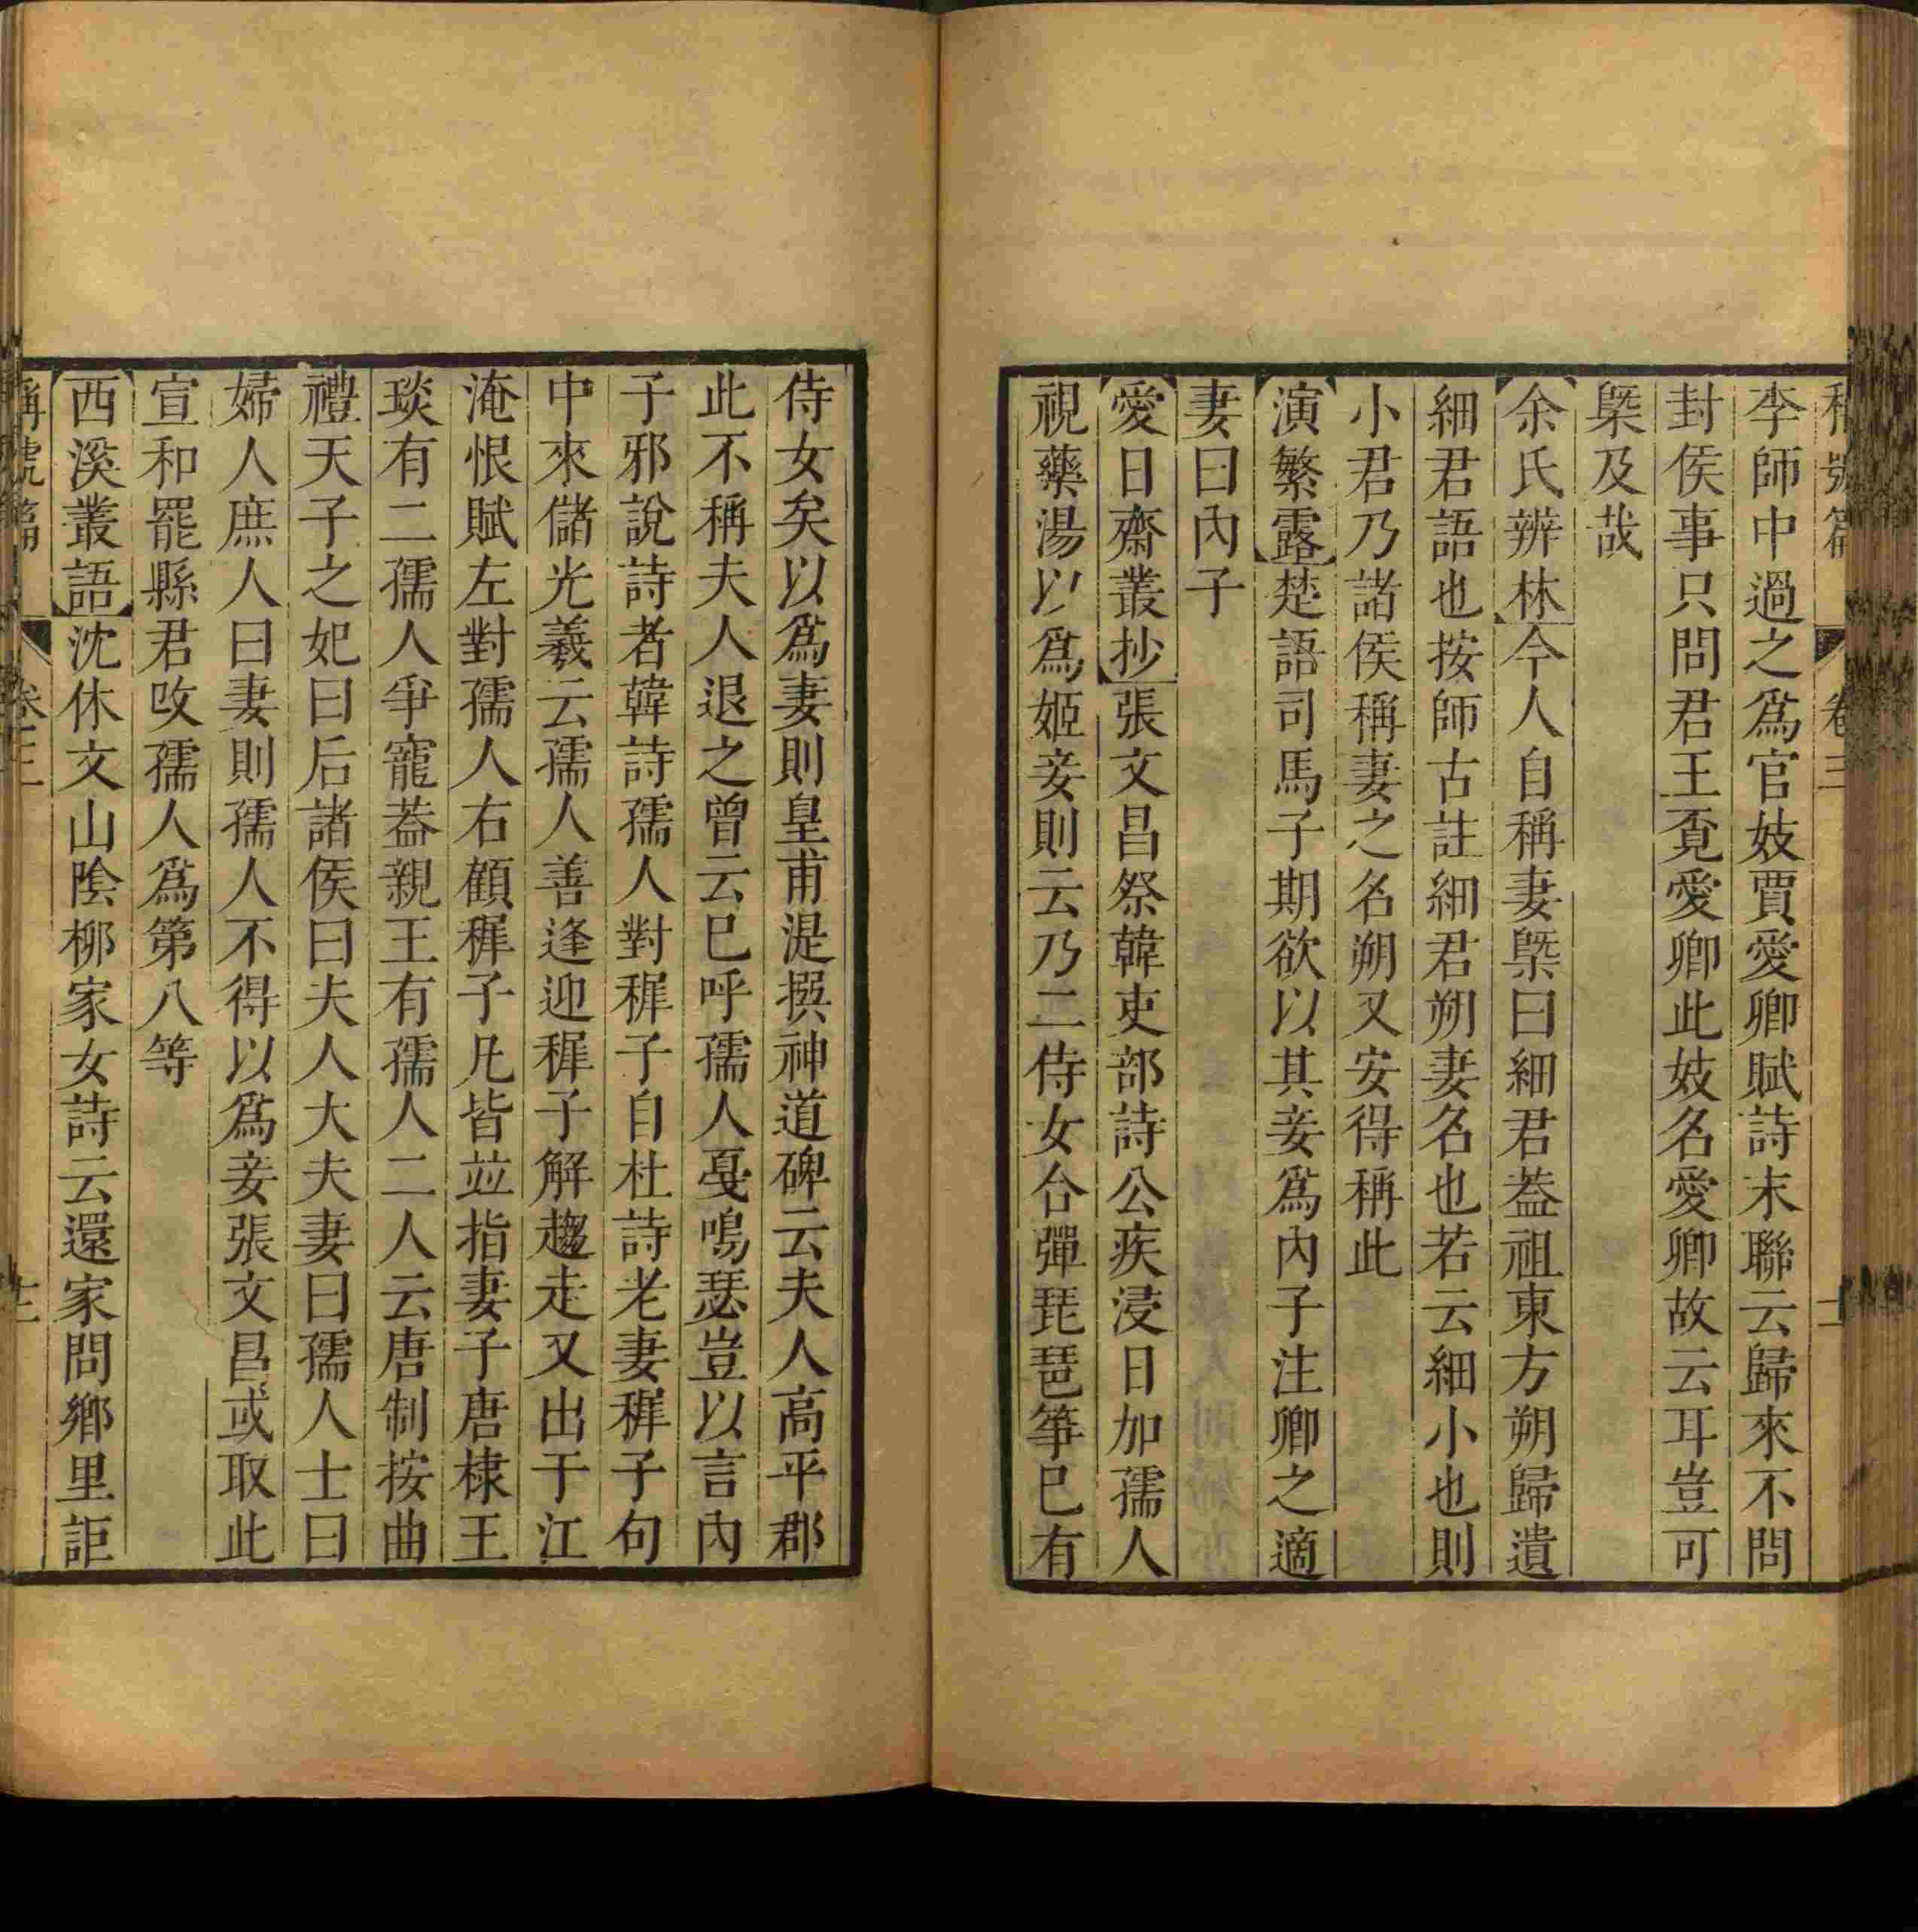 稱號篇 卷三
李師中過之爲官妓賈愛卿賦詩末聯云歸來不問
封侯事只問君王覔愛卿此妓名愛卿故云耳豈可
槩及哉
余氏辨林今人自稱妻槩曰細君葢祖東方朔歸遺
細君語也按師古註細君朔妻名也若云細小也則
小君乃諸侯稱妻之名朔又安得稱此
演繁露楚語司馬子期欲以其妾爲內子注卿之適
妻曰內子
愛日齋叢抄張文昌祭韓吏部詩公疾浸日加孺人
視藥湯以爲姬妾則云乃二侍女合彈琵琶箏巳有
侍女矣以爲妻則皇甫湜撰神道碑云夫人高平郡
此不稱夫人退之曾云巳呼孺人戞鳴瑟豈以言內
子邪說詩者韓詩孺人對稺子自杜詩老妻稺子句
中來儲光羲云孺人善逢迎稺子解趨走又出于江
淹恨賦左對孺人右顧稺子凡皆並指妻子唐棣王
琰有二孺人爭寵葢親王有孺人二人云唐制按曲
禮天子之妃曰后諸侯曰夫人大夫妻曰孺人士曰
婦人庶人曰妻則孺人不得以爲妾張文昌或取此
宣和罷縣君攺孺人爲第八等
西溪叢語沈休文山陰柳家女詩云還家問鄉里詎
稱號篇 卷三